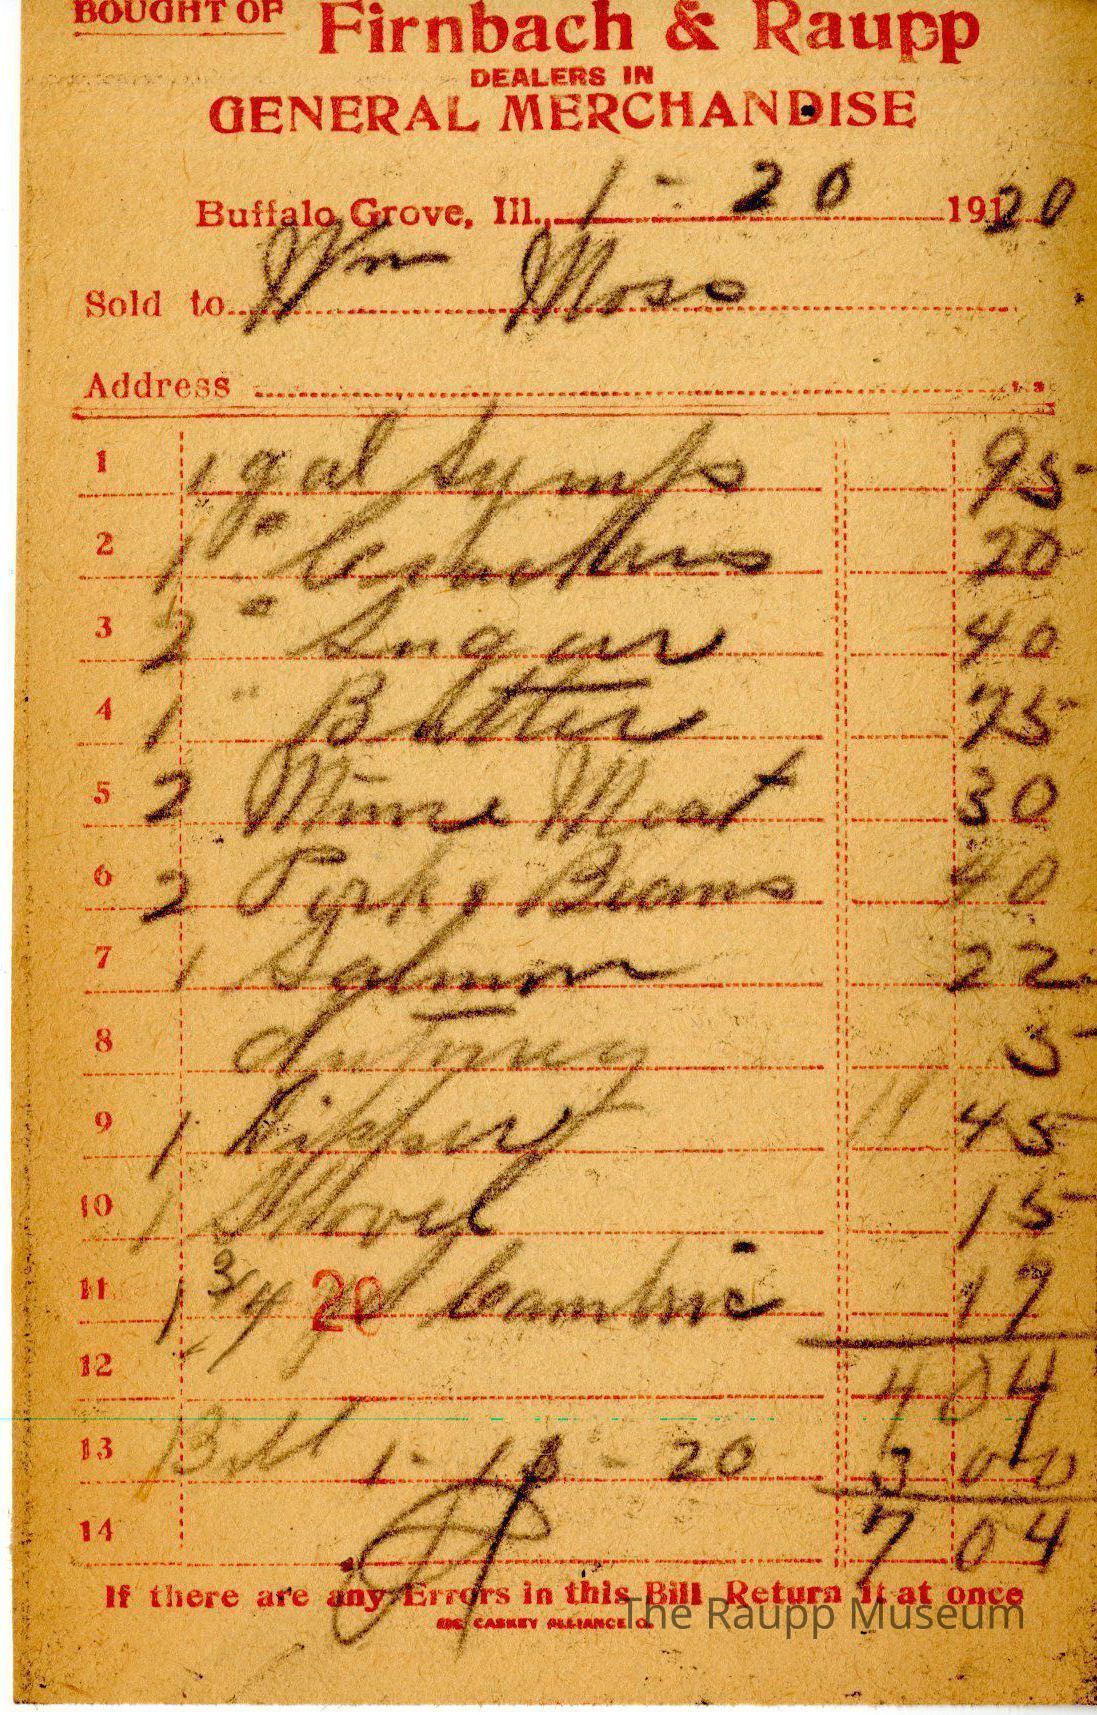 BOUGHT OF Firnbach & Raupp
DEALERS IN
GENERAL MERCHANDISE
Buffalo Grove, Ill., 1-20 19120
Sold to Wm Moss
Address
1 1 gal Syrup 95
2 1 " Crackers 20
3 2 " Sugar 40
4 1 " Butter 75
5 2 Mince Meat 30
6 2 Pork & Beans 40
7 1 Salmon 22
8 5
9 1 Dipper 45
10 1 Shovel 15
11 1 3/4 yd Cambric 17
20
12 4 04
13 Bill 1-16-20 3 00
14 7 04
If there are any Errors in this Bill Return it at once
The Raupp Museum